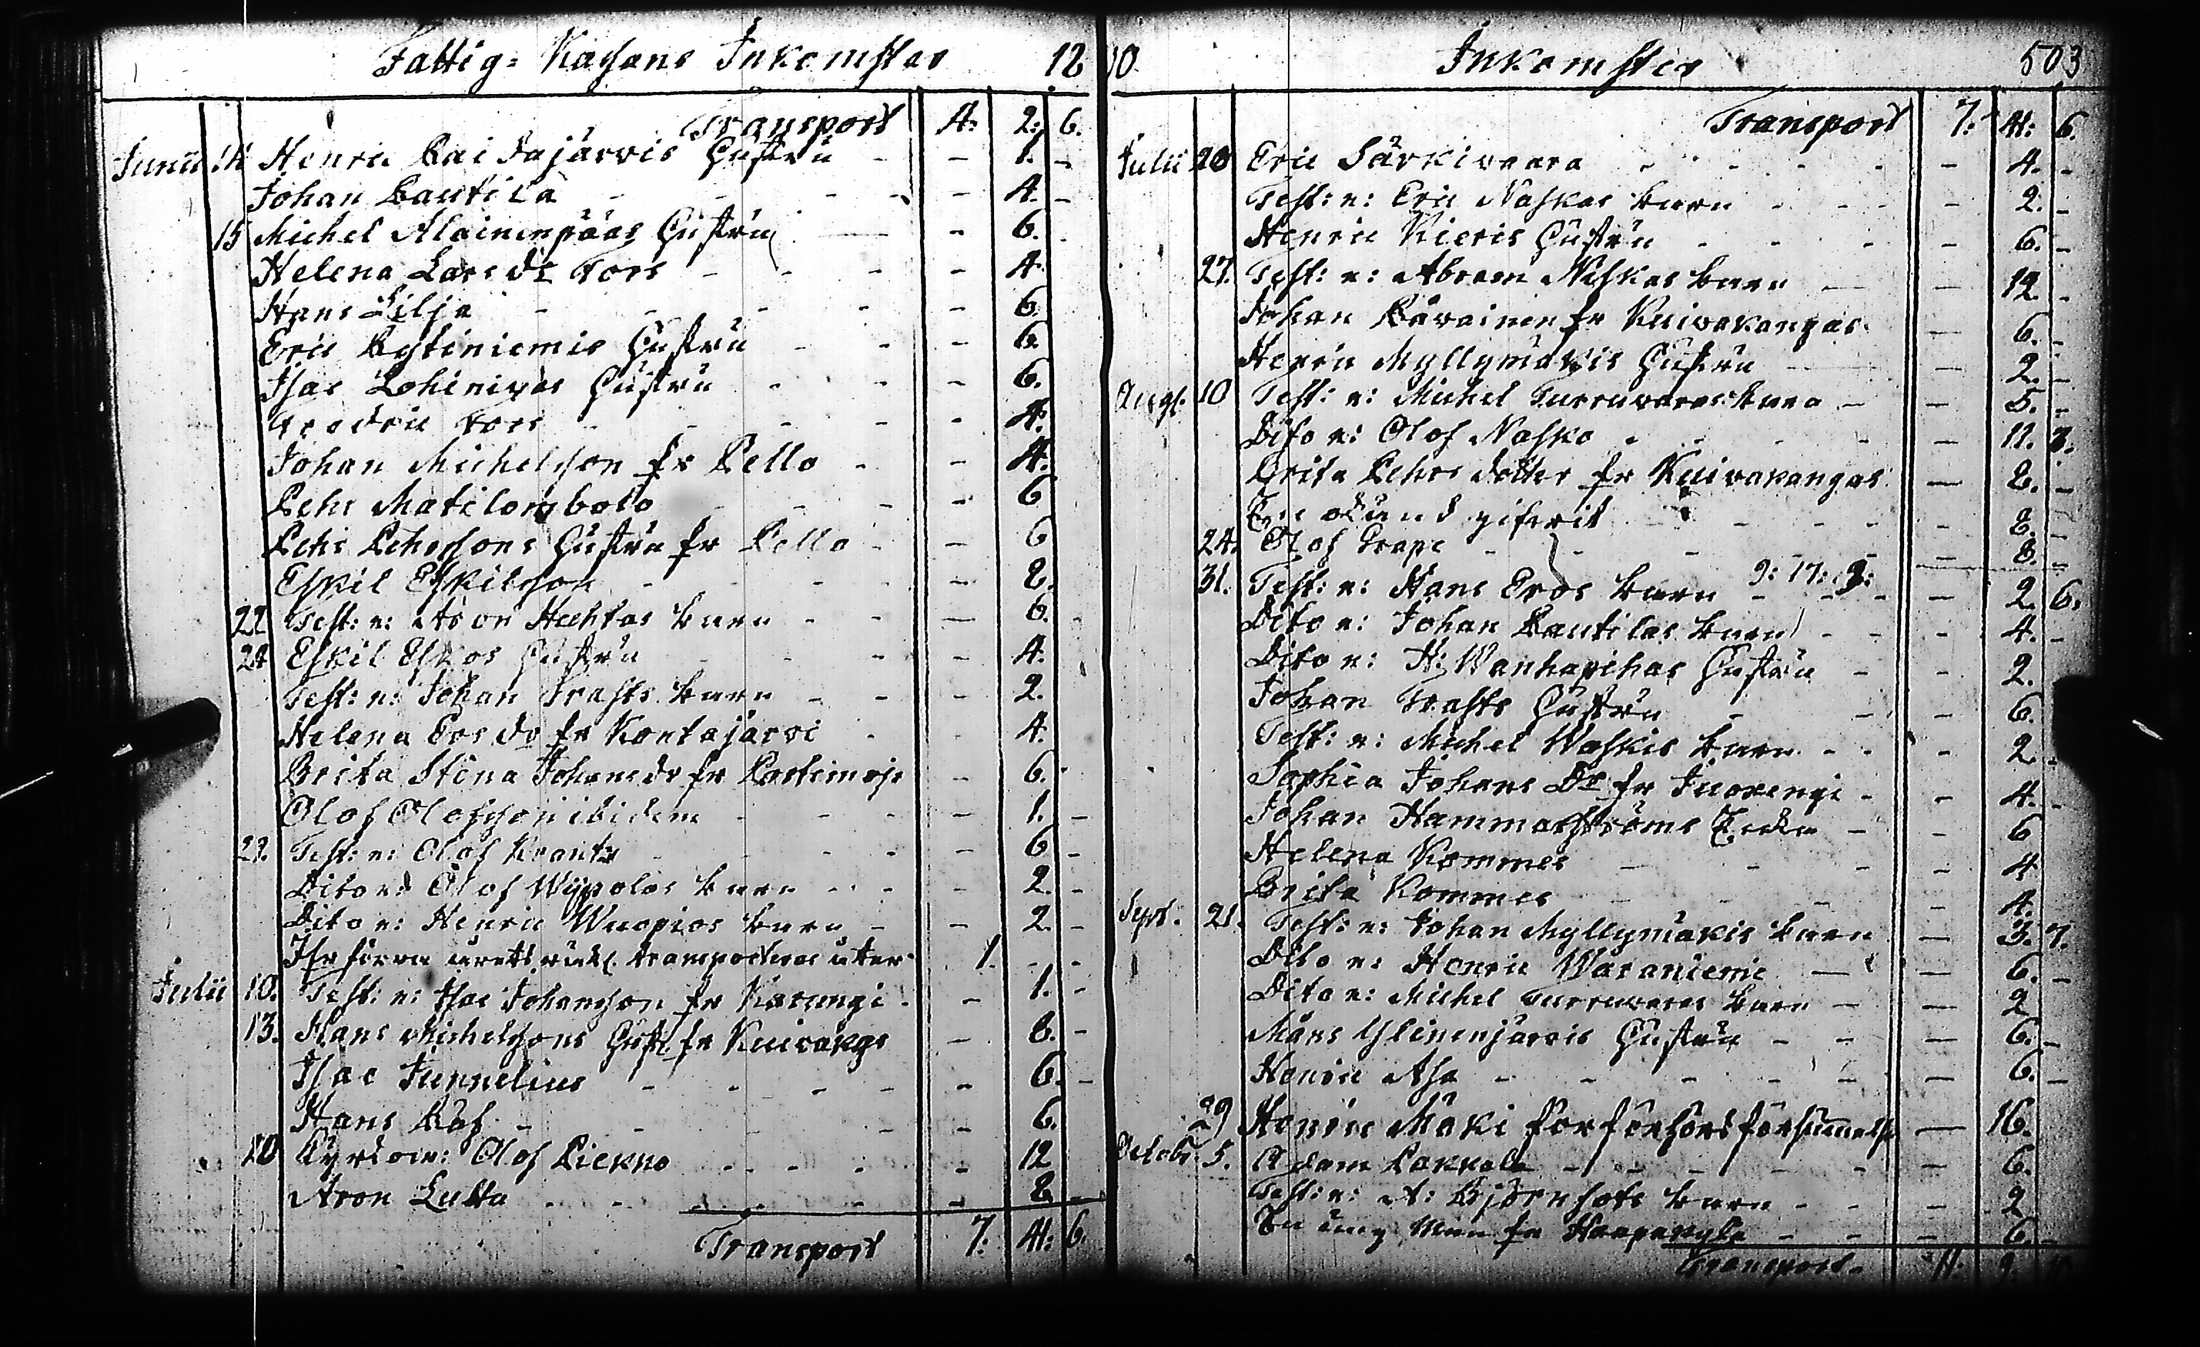 Fattig-Kassans Inkomster 1810.
Transport 4: 2: 6.
Junii 14 Henric Raidajärvis Hustru - 1. -
Johan Rautila - 4. -
15 Michel Alainenpääs Hustru - 6.
Helena Larsdr Fors - 4
Hans Lilja - 6.
Eric Kytiniemis Hustru - 6.
Isac Lohinivas Hustru - 6.
Fredric Fors - 4.
Johan Michelsson fr Pello - 4.
Pehr Matilompolo - 6
Pehr Pehrssons Hustru fr Pello - 6
Eskil Eskilsson - 2.
22 Test: e: Aron Huhtas barn - 6.
24 Eskil Eskos Hustru - 4.
Test: e: Johan Trasts barn - 2.
Helena Ersdr fr Kortajärvi - 4.
Brita Stina Johansdr fr - 6.
Olof Olofsson ibidem - 1. -
29. Test: e: Olof Krantz - 6 -
Dito e: Olof Wypolos barn - 2. -
Dito e: Henric Wuopios barn - 2. -
1. - -
Julii 10. Test: e: Isac Johansson fr Karungi - 1. -
13. Hans Michelssons Hust. fr Kuivakgs - 8. -
Isac Junnelius - 6. -
Hans Råf - 6.
20 Kyrkow: Olof Piekno - 12
Aron Lutta - 2 -
Transport 7. 41: 6.
Inkomster 503
Transport 7: 41: 6.
Julii 20 Eric Särkivaara - 4. -
Test: e: Eric Naskas barn - 2. -
Henric Kieris Hustru - 6. -
27. Test: e: Abram Niskas barn - 12. -
Johan fr Kuivakangas - 6. -
Henric Myllymäkis Hustru - 2. -
Augt. 10 Test: e: Michel Turruvaras barn - 5. -
Dito e: Olof Nasko - 11. 3.
Brita Pehrs dotter fr Kuivakangas - 2. -
8. -
24. Olof Grape - 8. -
31. Test: e: Hans Eros barn - 2. 6.
Dito e: Johan Rautilas barn - 4. -
Dito e: H: Wanhapihas Hustru - 2.
Johan Trasts Hustru - 6.
Test: e: Michel Waskis barn - 2.
Sophia Johans Dr fr Juoxengi - 4. -
Johan Hammarströms Enka - 6
Helena Kommes - 4
Brita Kommes - 4.
Sept. 21. Test: e: Johan Myllymäkis barn - 3. 7.
Dito e: Henric Waraniemi - 6. -
Dito e: Michel Turruvaras barn - 2
Måns Ylinenjärvis Hustru - 6. -
Henric Asa - 6. -
29 Henric Mäki för förhörs försummelse - 16.
Octobr. 5. Adam Lakkala - 6.
Test: e: A: Björnfots barn - 2
En ung Man fr Haapakylä - 6. -
Transport 11: 9.